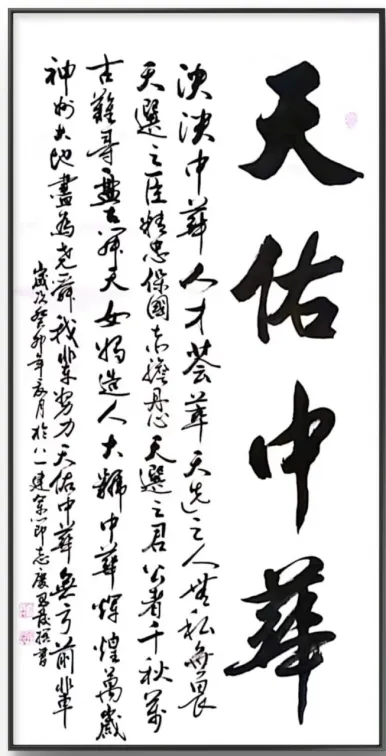 天佑中華
泱泱中華人才薈萃天选之人無私無畏
天選之臣精忠保國赤膽丹心天選之君公者千秋萬
古難尋盤古開天女媧造人大獅中華輝煌萬歲
神州大地盡為堯舜我輩努力天佑中華無亏前輩
歲次癸卯年夏月於八一建軍節志慶
書